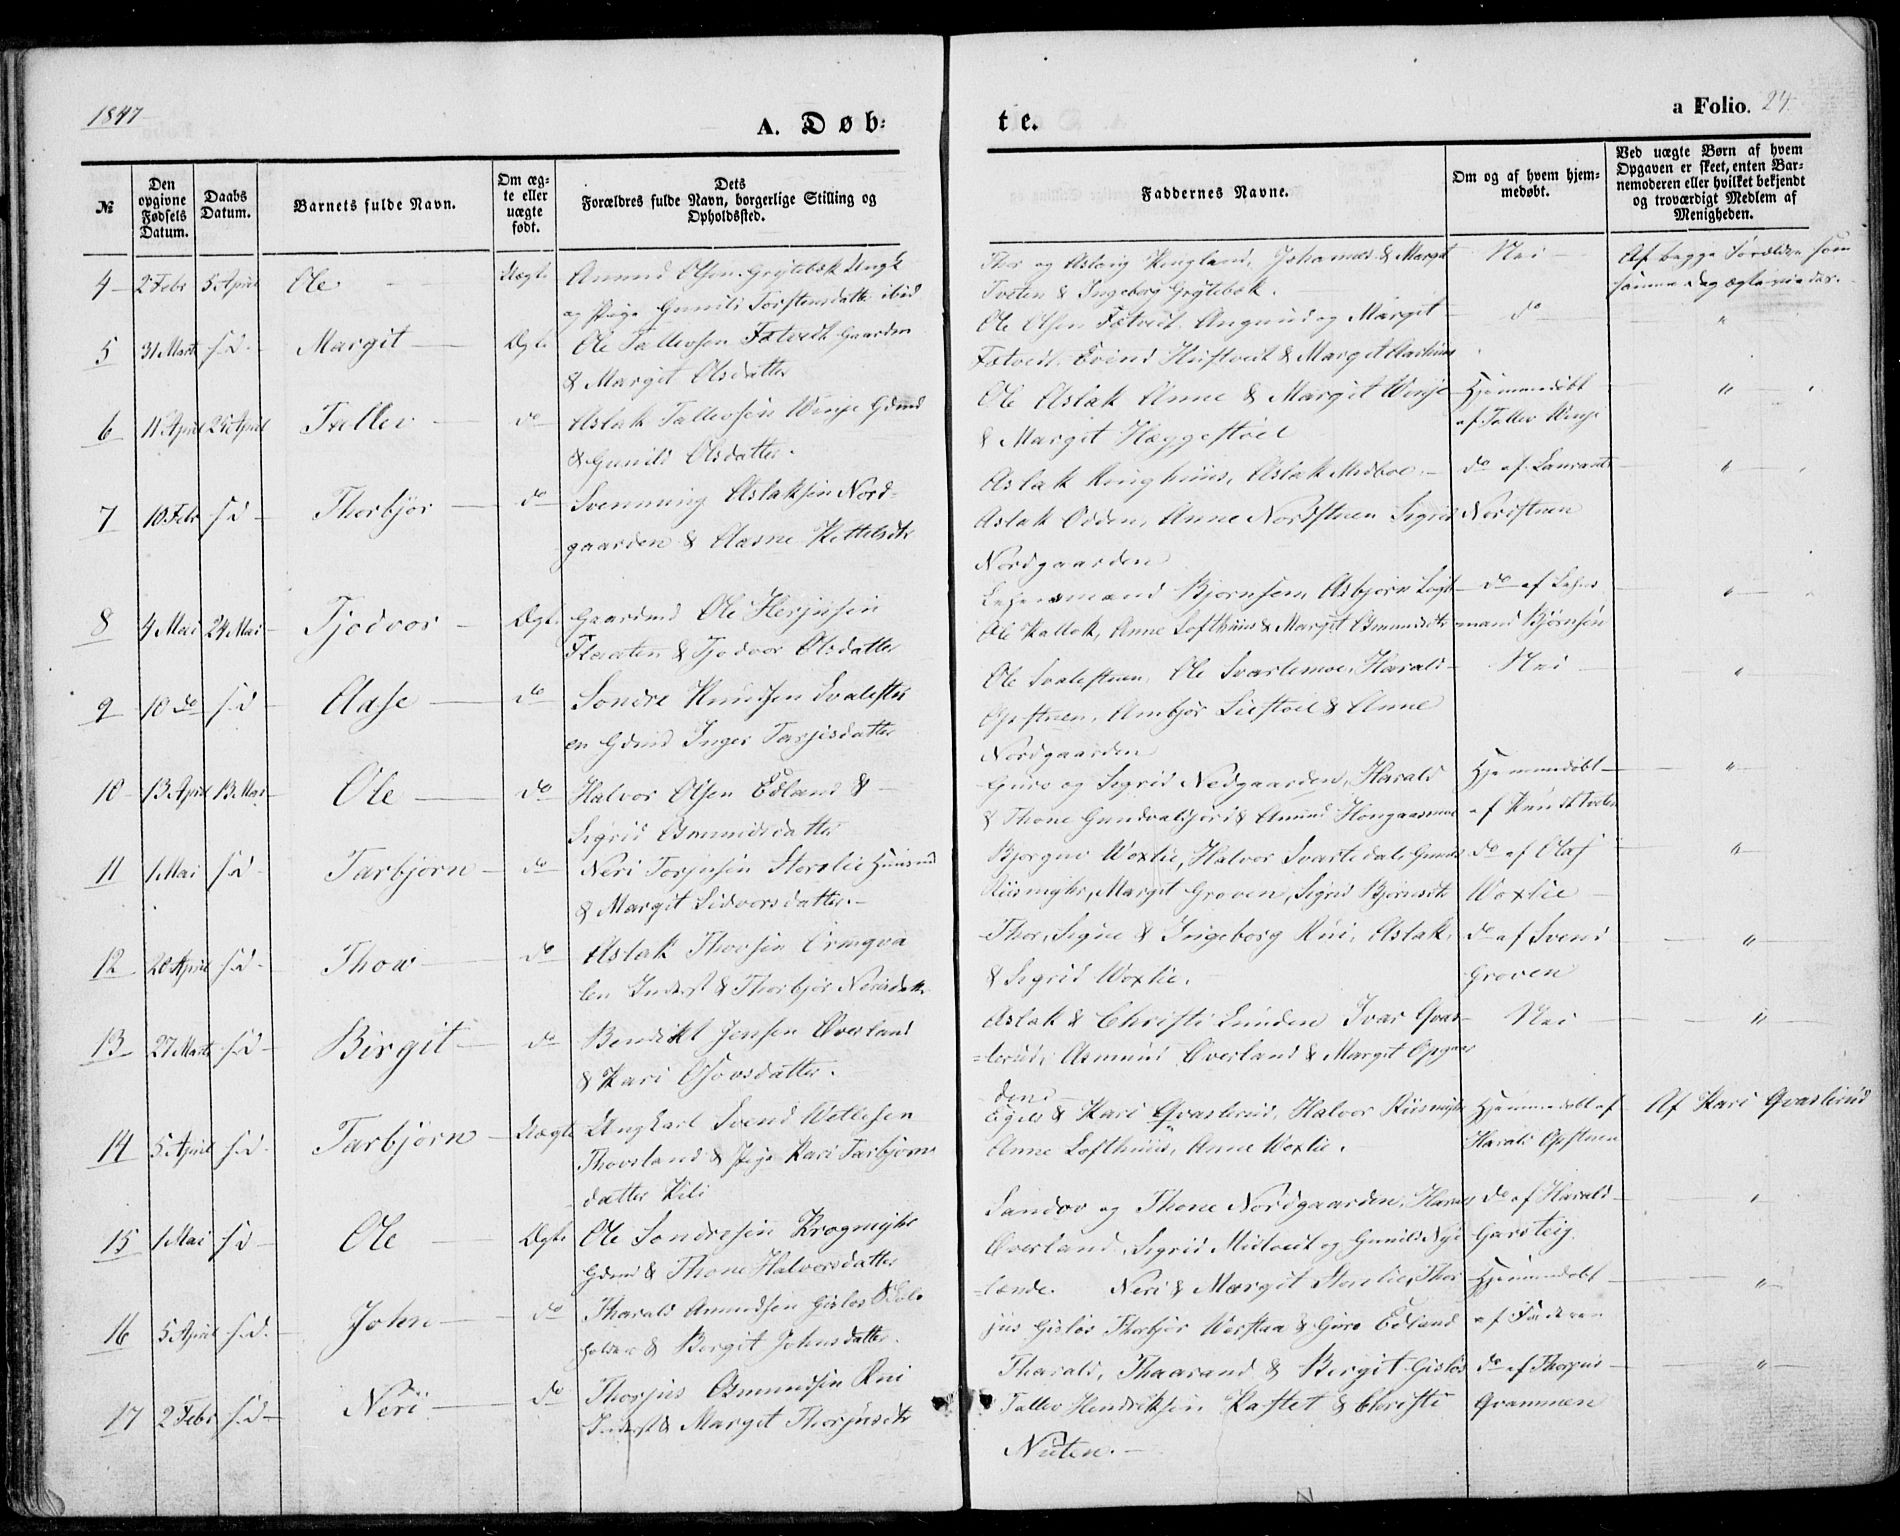 1847
A. Døb:
te.
a Folio. 24.
№
Den opgivne Fødsels Datum.
Daabs Datum.
Barnets fulde Navn.
Om ægte eller uægte født.
Dets Forældres fulde Navn, borgerlige Stilling og Opholdssted.
Faddernes Navne.
Om og af hvem hjemmedøbt.
Ved uægte Børn af hvem Opgaven er skeet, enten Barnemoderen eller hvilket bekjendt og troværdigt Medlem af Menigheden.
4 2 Febr 5 April Ole Uægte Amund Olsen Grytebek Ungk
og Pige Gunild Torstensdatter ibid
Thor og Aslaug Kingland, Johannes & Margit
Tveten & Ingeborg Grytebek.
Nei
Af begge Forældre som
samme Dag ægtevieder.
5 31 Marts s.d. Margit Ægte Ole Tallevsen Fætvedt Gaardm
& Margit Olsdatter
Ole Olsen Fætveit, Amund og Margit
Fætvedt, Eivind Hustveit & Margit Aarhuus
do "
6 11 April 25 April Tallev do Aslak Tallevsen Vinje Gdmd
& Gunild Olsdatter.
Ole Aslak Anne & Margit Vinje
& Margit Hæggestoel
Hjemmedøbt
af Tallev Vinje
"
7 10 Febr s.d. Thorbjør do Svenning Aslaksen Nord-
gaarden & Aasne Kittelsdtr
Aslak Kinghuus, Aslak Midboe
Aslak Odden, Anne Nordstuen Sigrid
Nordgaarden
do af Laurants
Nordstuen
"
8 4 Mai 24 Mai Tjodvor Ægte Gaardmd Ole Herjusen
Flaaten & Tjodvor Olsdatter
Lehnsmand Bjørnsen, Asbjørn Logt
Ole Kallok, Anne Lofthuus & Margit Osmundsdtr
do af Lehns
mand Bjørnsen
"
9 10 do s.d. Aase do Sondre Knudsen Svalestu
en Gdmd Inger Tarjeisdatter
Ole Svalestuen, Ole Svartemoe, Harald
Opstuen, Ambjør Liestoel & Anne
Nordgaarden
Nei "
10 13 April 13 Mai Ole do Halvor Olsen Edland &
Sigrid Osmundsdatter
Guro og Sigrid Nedgaarden, Harald
& Thone Gundvalsjord & Amund
Hjemmedøbt
af Knud Tveten
"
11 1 Mai s.d. Tarbjørn do Neri Torjusen Storolie Huusmd
& Margit Lidvorsdatter.
Bjørgni Woxlie, Halvor Svartedal, Gunild
Kiismyhr, Margit Groven, Sigrid Bjørnsdtr
do af Olaf
Woxlie
"
12 20 April s.d. Thow do Aslak Thovsen Ormqva
len Inderst & Thorbjør Nerisdatter
Thor, Signe & Ingeborg Rui, Aslak
& Sigrid Woxlie.
do af Svend
Groven
"
13 27 Marts s.d. Birgit do Bendikt Jensen Overland
& Kari Thovsdatter.
Aslak & Christi Lunden Ivar Qvas-
lerud, Asmund Overland & Margit Opgaar
den
Nei "
14 5 April s.d. Tarbjørn Uægte Ungkarl Svend Wetlesen
Thovsland & Pige Kari Tarbjørns
datter Kili
Egild & Kari Qvaslerud, Halvor Kiismyhr
Anne Lofthuus, Anne Woxlie.
Hjemmedøbt af
Harald Opstuen
Af Kari Qvaslerud
15 1 Mai s.d. Ole Ægte Ole Sondresen Krogmyhr
Gdmd & Thone Halvorsdatter
Sandov og Thone Nordgaarden, Harald
Overland, Sigrid Midtveit og Gunild Nye
lænde.
do af Harald
Garsteig.
"
16 5 April s.d. John do Tharald Amundsen Gisløs Selv
holder & Birgit Johnsdatter.
Neri & Margit Storelie, Thor
jus Gisløs Thorbjør Werstaa & Guro Edland
Hjemmedøbt
af Faderen
"
17 2 Febr s.d. Neri do Thorjus Osmundsen Rui
Inderst & Margit Thorjusdtr
Tharald, Thaarand & Birgit Gisløs
Tallev Hendriksen Kastet & Christi
Nuten.
do af Thorjus
Qvammen
"